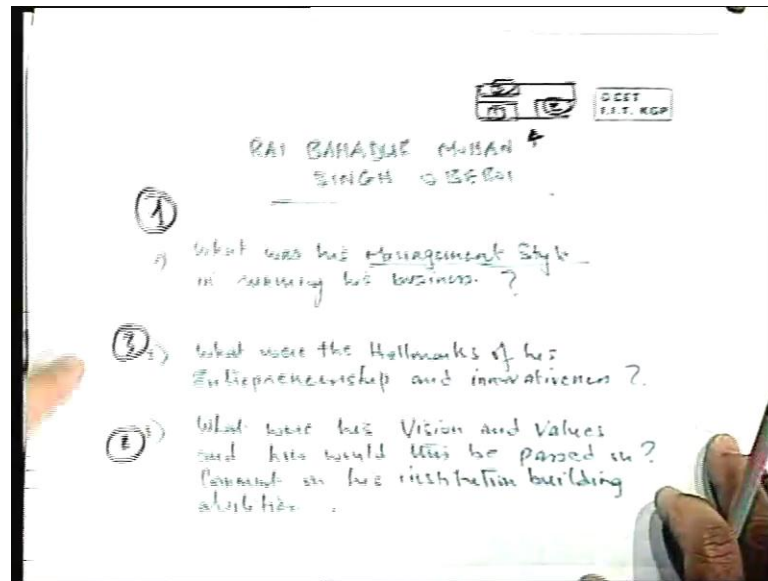 © CET
I.I.T. KGP
RAI BAHADUR MOHAN
SINGH OBEROI
1
1) What was his Management Style
in running his business. ?
3 2) What were the Hallmarks of his
Entrepreneurship and innovativeness ?
3) What were his Vision and Values
and how would this be passed on ?
Comment on his institution building
abilities .